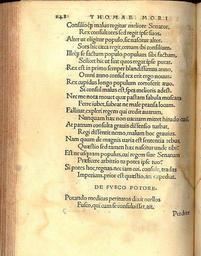 242 THOMAE MORI
Consilioq; malus regitur meliore Senator,
Rex consultores sed regit ipse suos.
Alter ut eligitur populo, sic nascitur alter.
Sors hic cæca regit, certum ibi consilium.
Illeq; se factum populo, populum sibi factum,
Scilicet hic ut sint quos regat ipse putat.
Rex est in primo semper blandissimus anno,
Omni anno consul rex erit ergo nouus.
Rex cupidus longo populum corroserit æuo.
Si consul malus est, spes melioris adest.
Nec me nota mouet quæ pastam fabula muscam
Ferre iubet, subeat ne male pransa locum.
Fallitur, expleri regem qui credit auarum,
Nunquam hæc non uacuam mittet hirudo cutem.
At patrum consulta grauis dissensio turbat,
Regi dissentit nemo, malum hoc grauius.
Nam quum de magnis uaria est sententia rebus,
Quæstio sed tamen hæc nascitur unde tibi?
Estne usquam populus, cui regem siue Senatum
Præficere arbitrio tu potes ipse tuo?
Si potes hoc, regnas: nec iam cui, consule, tradas
Imperium, prior est quæstio, an expediat.
DE FVSCO POTORE.
Potando medicus perituros dixit ocellos
Fusco, qui cum se consuluisset, ait,
Perdere